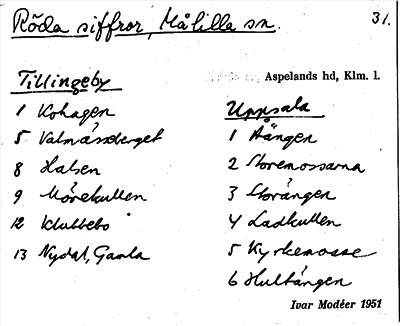 Röda siffror, Målilla sn. 31.
Aspelands hd, Klm. l.
Tillingeby
1 Kohagen
5 Valmåsseberget
8 Halsen
9 Mörekullen
12 Klubbebo
13 Nydal, Gamla
Uppsala
1 Hången
2 Storemossarna
3 Storängen
4 Ladkullen
5 Kyrkemosse
6 Hultängen
Ivar Modéer 1951